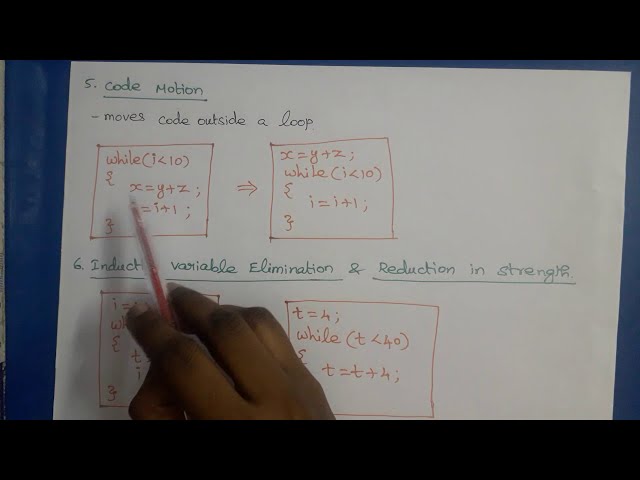 5. Code Motion
- moves code outside a loop
while(i<10)
{
x=y+z;
=i+1;
}
⇒
x=y+z;
while(i<10)
{
i=i+1;
}
6. Induct variable Elimination & Reduction in strength
i=
{
t
i
}
t=4;
while(t<40)
{
t=t+4;
}